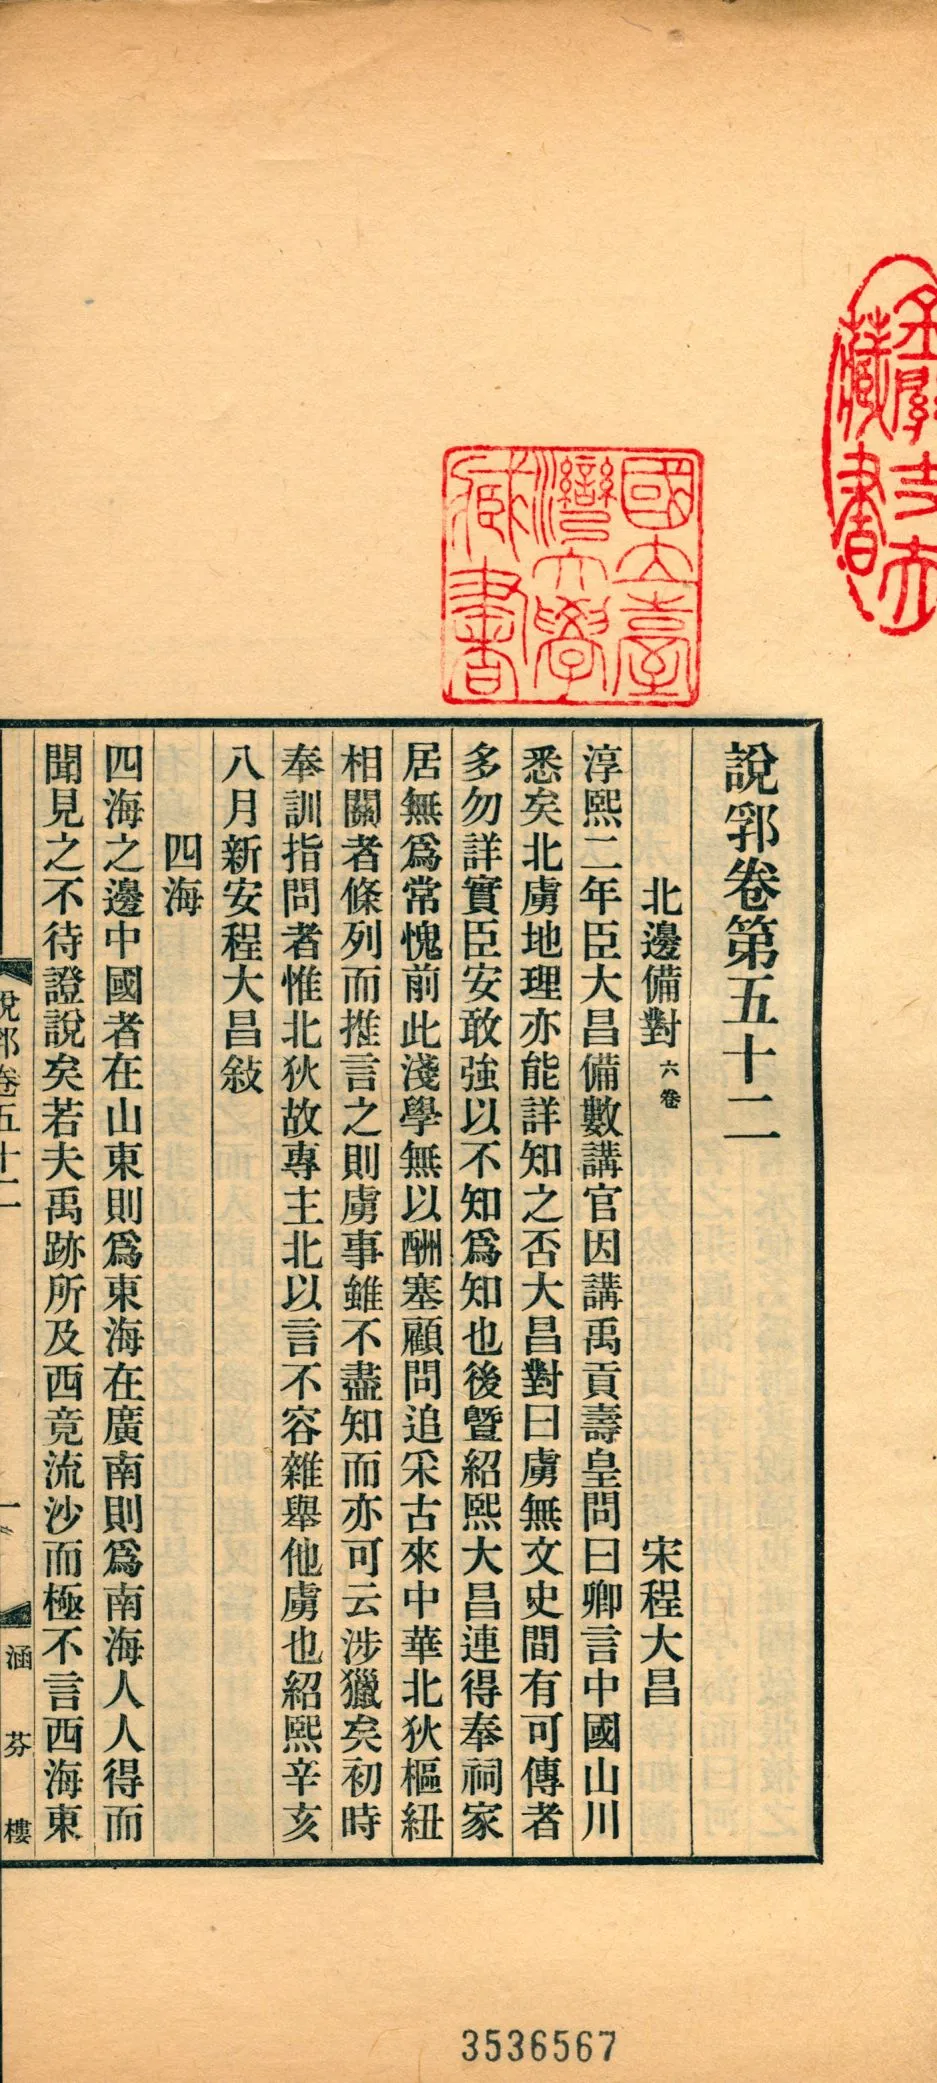 說郛卷第五十二
北邊備對 六卷 宋程大昌
淳熙二年臣大昌備數講官因講禹貢壽皇問曰卿言中國山川
悉矣北虜地理亦能詳知之否大昌對曰虜無文史間有可傳者
多勿詳實臣安敢強以不知爲知也後曁紹熙大昌連得奉祠家
居無爲常愧前此淺學無以酬塞顧問追采古來中華北狄樞紐
相關者條列而推言之則虜事雖不盡知而亦可云涉獵矣初時
奉訓指問者惟北狄故專主北以言不容雜舉他虜也紹熙辛亥
八月新安程大昌敍
四海
四海之邊中國者在山東則爲東海在廣南則爲南海人人得而
聞見之不待證說矣若夫禹跡所及西竟流沙而極不言西海東
說郛卷五十二
一
涵芬樓
國立臺
灣大學
藏書
藏書
3536567